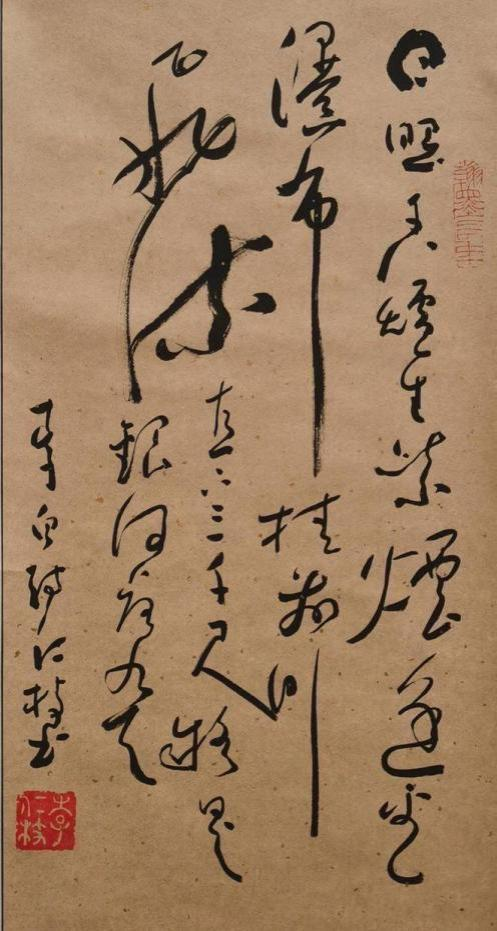 日照香爐生紫煙遥看
瀑布挂前川
飛流直下三千尺疑是
銀河落九天
李白詩仁枝书
李仁枝